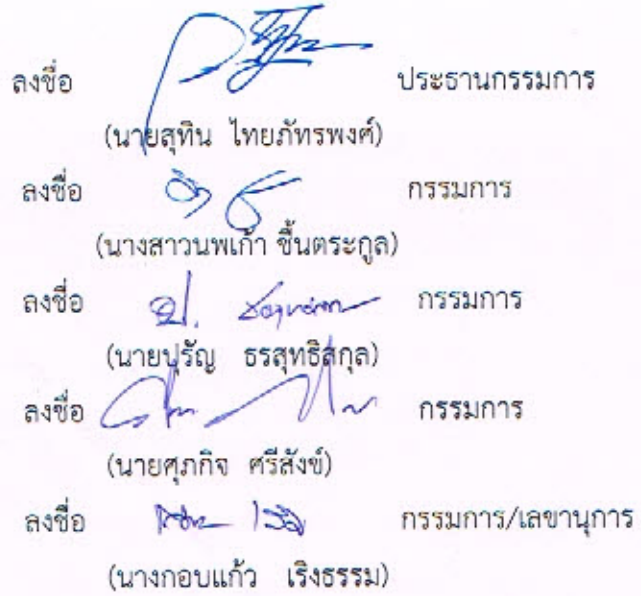 ลงชื่อ ประธานกรรมการ
(นายสุทิน ไทยภัทรพงศ์)
ลงชื่อ กรรมการ
(นางสาวนพเก้า ชื้นตระกูล)
ลงชื่อ กรรมการ
(นายปุรัญ ธรสุทธิสกุล)
ลงชื่อ กรรมการ
(นายศุภกิจ ศรีสังข์)
ลงชื่อ กรรมการ/เลขานุการ
(นางกอบแก้ว เริงธรรม)